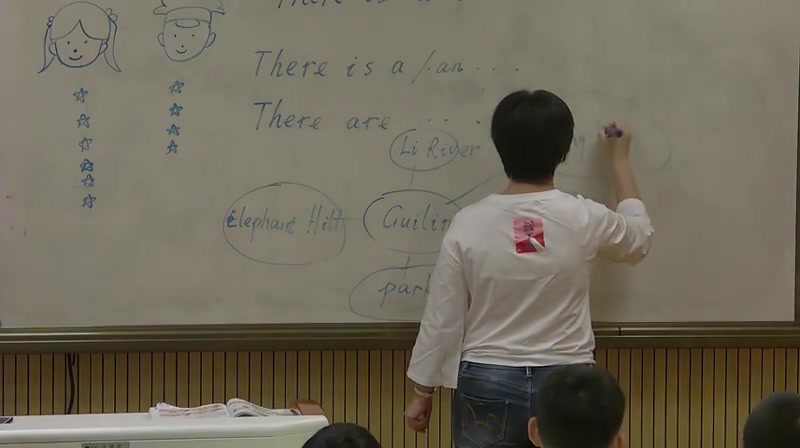 There is a
There is a / an ....
There are ....
Li River
Elephant Hill
Guilin
park